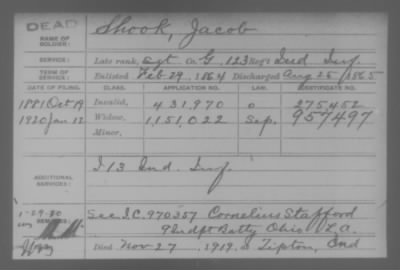 DEAD
NAME OF SOLDIER: Shook, Jacob
SERVICE: Late rank, Sgt Co. G, 123 Reg't Ind Inf.
TERM OF SERVICE: Enlisted Feb 29, 1864 Discharged Aug 25, 1865
DATE OF FILING. CLASS. APPLICATION NO. LAW. CERTIFICATE NO.
1881 Oct 19 Invalid, 431,970 275,452
1920 Jan 12 Widow, 1,151,022 Sep. 957497
Minor,
ADDITIONAL SERVICES: I 13 Ind. Inf.
REMARKS: See I.C. 970357 Cornelius Stafford
9 Indpt Batty Ohio L.A.
Died Nov 27, 1919. at Tipton, Ind